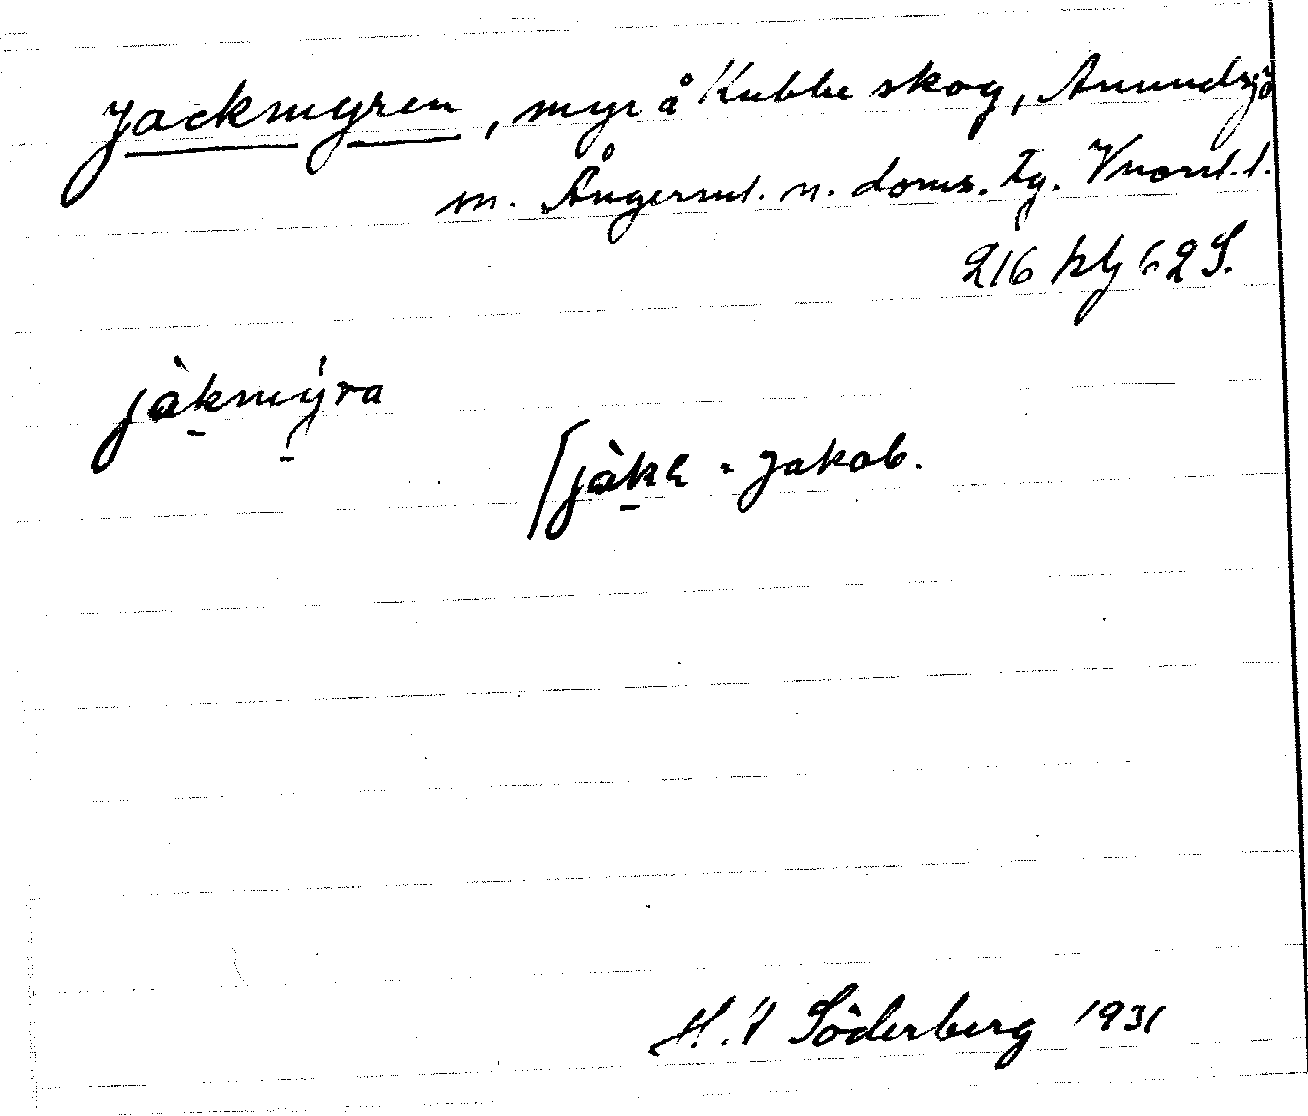 Jackmyren, myr å Kubbe skog, Anundsjö
m. Ångerml. n. doms. tg. Vnorrl. l.
216 hlj 62 S.
jàkmýra
[jàkɛ = Jakob.
H. V Söderberg 1931